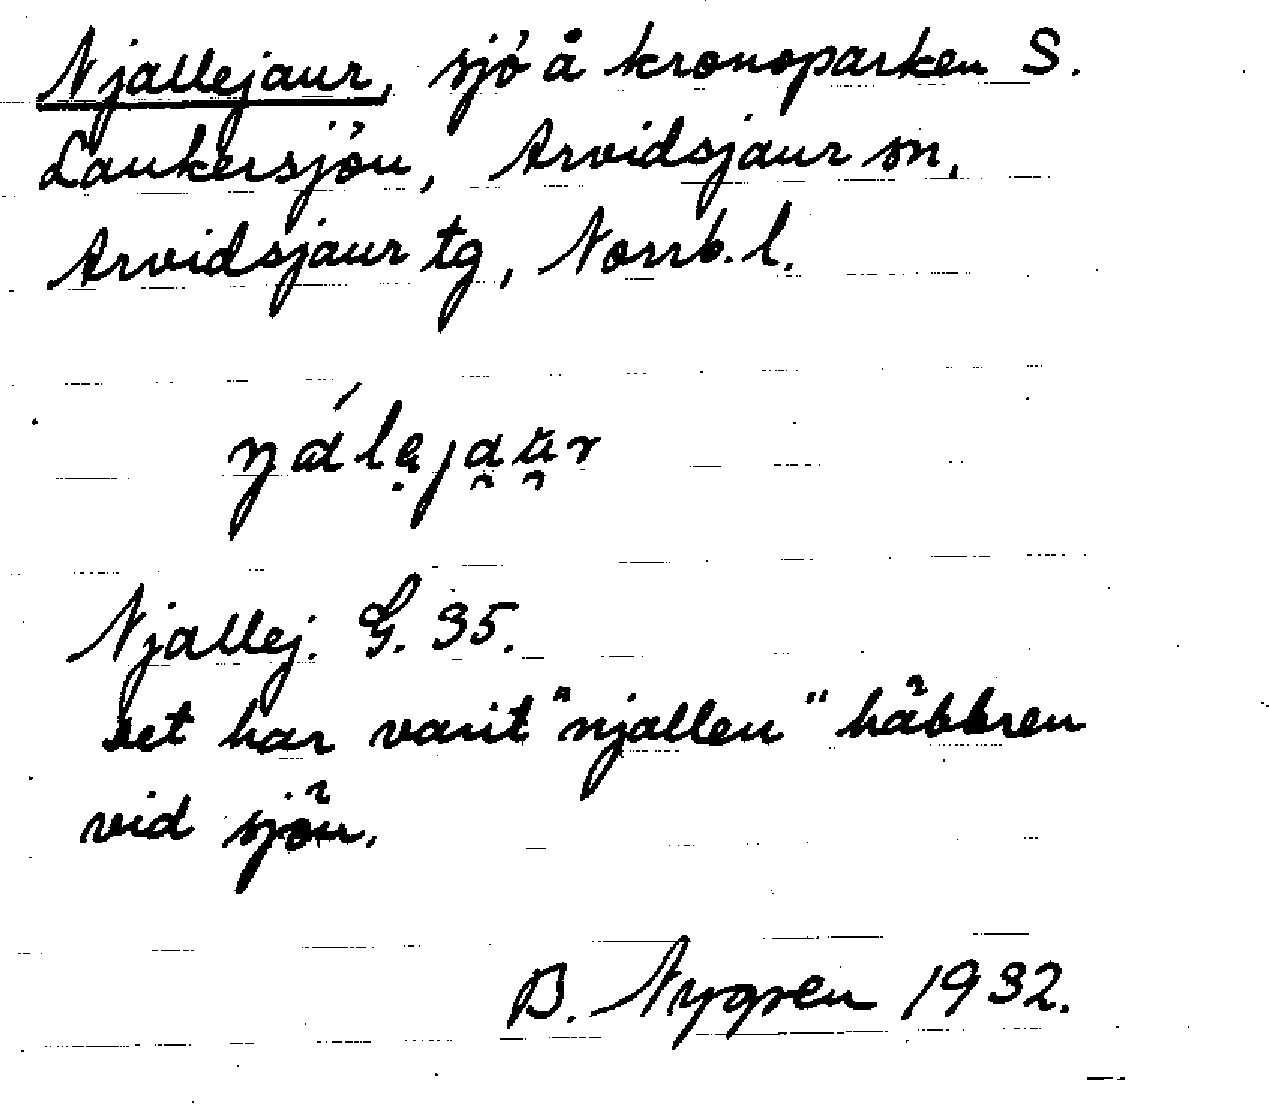 Njallejaur, sjö å kronoparken S.
Laukersjön, Arvidsjaur sn,
Arvidsjaur tg, Norrb. l.
Njallej. G. 35.
Det har varit "njallen" håbbren
vid sjön.
B. Nygren 1932.